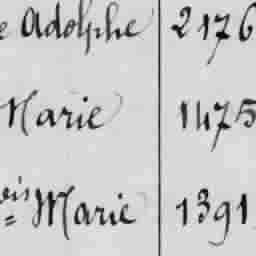 e Adolphe 2176
Marie 1475
vis= Marie 1391